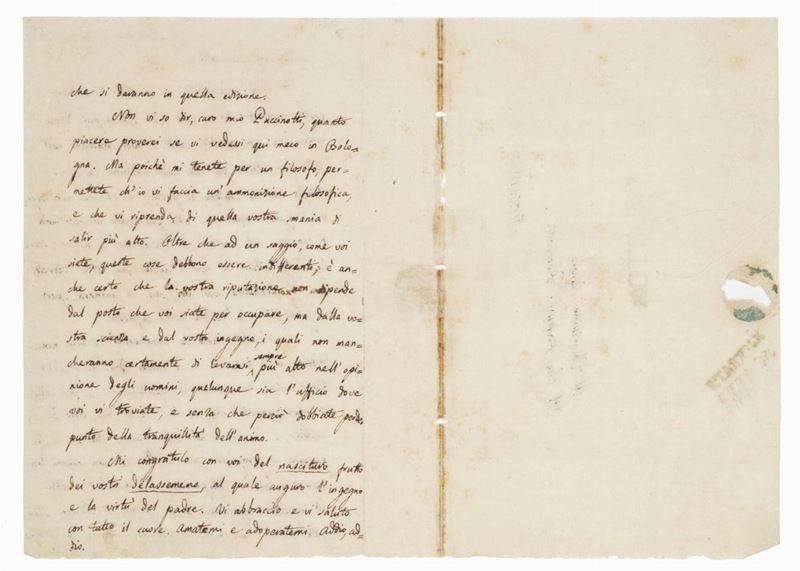 che si daranno in quella edizione.
Non vi so dir, caro mio Puccinotti, quanto
piacere proverei se vi vedessi qui meco in Bolo=
gna. Ma poichè mi tenete per un filosofo, per=
mettete ch'io vi faccia un'ammonizione filosofica,
e che vi riprenda di quella vostra mania di
salir più alto. Oltre che ad un saggio, come voi
siete, queste cose debbono essere indifferenti, è an=
che certo che la vostra riputazione non dipende
dal posto che voi siate per occupare, ma dalla vo=
stra scienza e dal vostro ingegno, i quali non man=
cheranno certamente di levarvi sempre più alto nell'opi=
nione degli uomini, qualunque sia l'uffizio dove
voi vi troviate, e senza che perciò dobbiate perder
punto della tranquillità dell'animo.
Mi congratulo con voi del nascituro frutto
dei vostri délassemens, al quale auguro l'ingegno
e la virtù del padre. Vi abbraccio e vi saluto
con tutto il cuore. Amatemi e adoperatemi. Addio, ad=
dio.